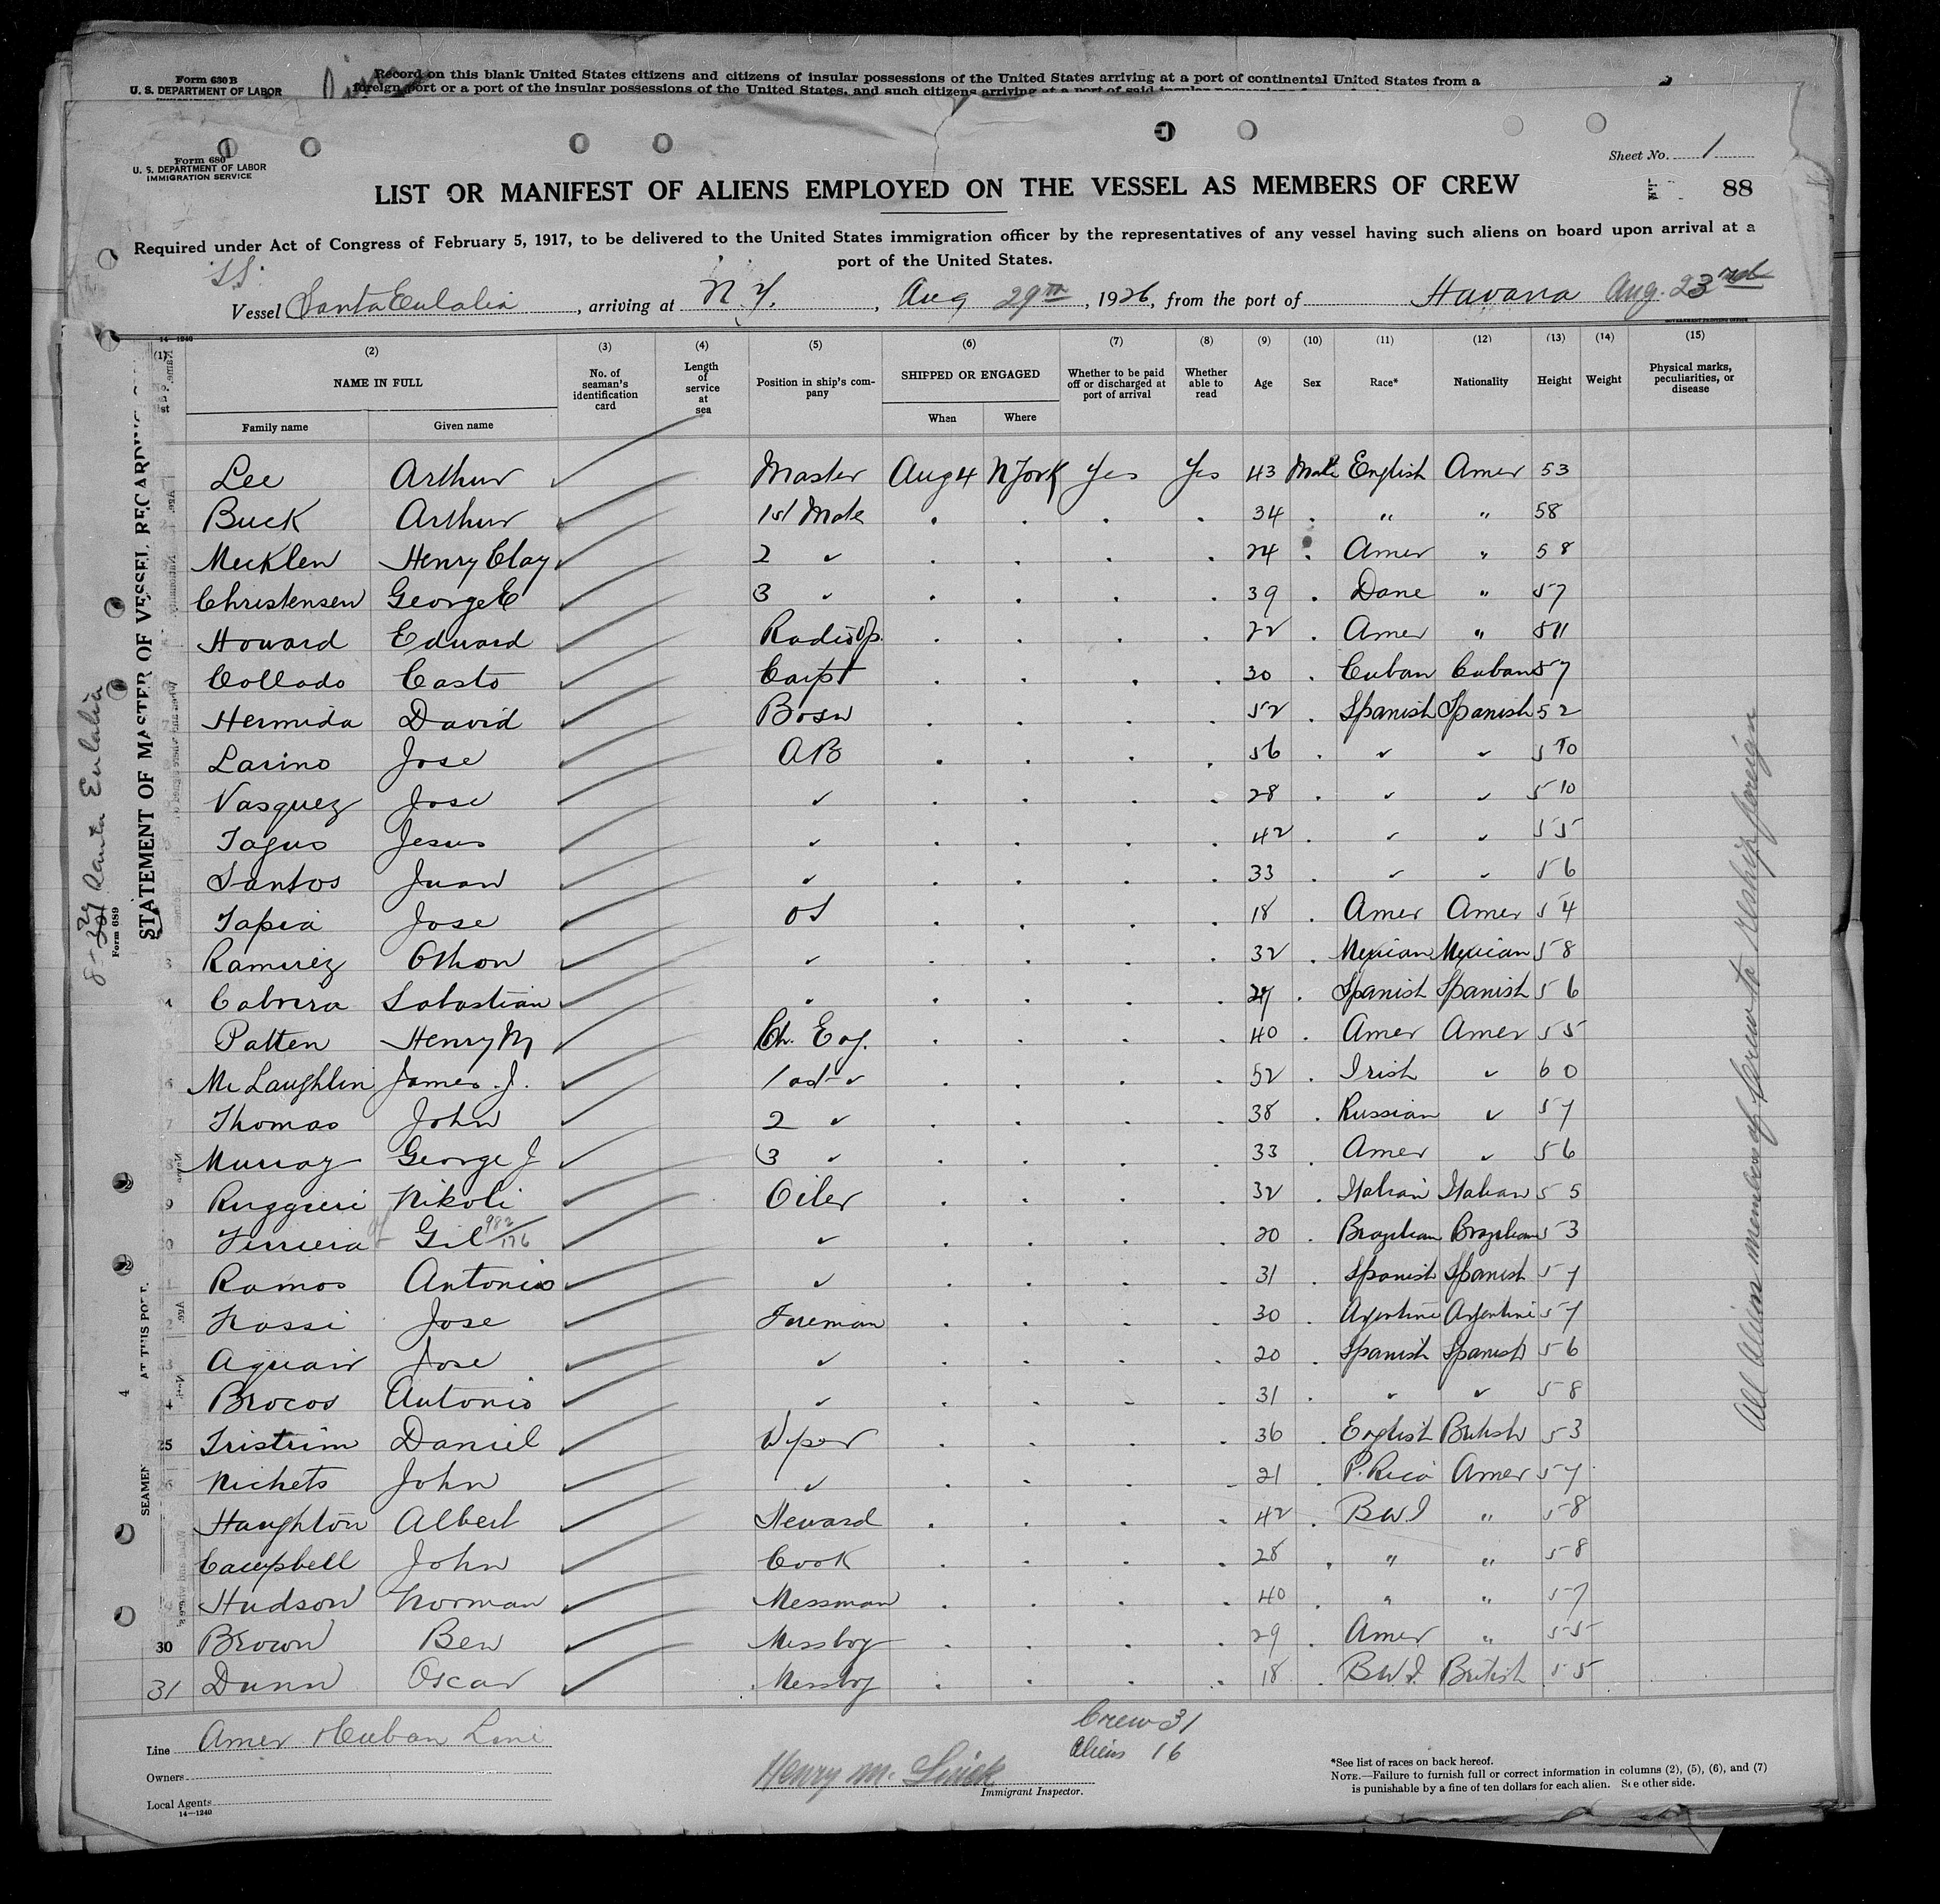 Form 630 B
U. S. DEPARTMENT OF LABOR
Record on this blank United States citizens and citizens of insular possessions of the United States arriving at a port of continental United States from a
foreign port or a port of the insular possessions of the United States, and such citizens arriving at a port of said insular possessions
Form 680
U. S. DEPARTMENT OF LABOR
IMMIGRATION SERVICE
Sheet No. 1
88
LIST OR MANIFEST OF ALIENS EMPLOYED ON THE VESSEL AS MEMBERS OF CREW
Required under Act of Congress of February 5, 1917, to be delivered to the United States immigration officer by the representatives of any vessel having such aliens on board upon arrival at a
port of the United States.
SS
Vessel Santa Eulalia, arriving at N.Y., Aug 29th, 1926, from the port of Havana Aug. 23rd
14-1240
(1) (2) (3) (4) (5) (6) (7) (8) (9) (10) (11) (12) (13) (14) (15)
NAME IN FULL No. of seaman's identification card Length of service at sea Position in ship's company SHIPPED OR ENGAGED Whether to be paid off or discharged at port of arrival Whether able to read Age Sex Race* Nationality Height Weight Physical marks, peculiarities, or disease
Family name Given name When Where
Lee Arthur Master Aug 4 N York Yes Yes 43 Male English Amer 53
Buck Arthur 1st Mate . . . . 34 . " " 58
Mecklen Henry Clay 2 ✓ . . . . 24 . Amer " 58
Christensen George E 3 ✓ . . . . 39 . Dane " 57
Howard Edward Radio Op. . . . . 22 . Amer " 511
Collado Casto Carpt . . . . 30 . Cuban Cuban 57
Hermida David Bosn . . . . 52 . Spanish Spanish 52
Larino Jose AB . . . . 56 . ✓ ✓ 510
Vasquez Jose ✓ . . . . 28 . ✓ ✓ 510
Jesus ✓ . . . . 42 . ✓ ✓ 55
Santos Juan ✓ . . . . 33 . ✓ ✓ 56
Tapia Jose OS . . . . 18 . Amer Amer 54
Ramirez Othon ✓ . . . . 32 . Mexican Mexican 58
Cabrera Sabastian . . . . . Spanish Spanish 56
Patten Henry M Ch. Eng. . . . . 40 . Amer Amer 55
McLaughlin James. J. 1 ast ✓ . . . . 52 . Irish ✓ 60
Thomas John 2 ✓ . . . . 38 . Russian ✓ 57
Murray George J 3 ✓ . . . . 33 . Amer ✓ 56
Ruggieri Nikoli Oiler . . . . 32 . Italian Italian 55
Ferriera Gil 982/176 ✓ . . . . 20 . Brazilian Brazilian 53
Ramos Antonio ✓ . . . . 31 . Spanish Spanish 57
Jose Fireman . . . . 30 . Argentine Argentine 57
Aguair Jose ✓ . . . . 20 . Spanish Spanish 56
Brocos Antonio ✓ . . . . 31 . ✓ ✓ 58
25 Tristrim Daniel Wiper . . . . 36 . English British 53
Nichets John ✓ . . . . 21 . P. Rico Amer 57
Haughton Albert Steward . . . . 42 . B W I " 58
Campbell John Cook . . . . 28 . " " 58
Hudson Norman Messman . . . . 40 . " " 57
30 Brown Ben Messboy . . . . 29 . Amer " 55
31 Dunn Oscar Messboy . . . . 18 . B W I. British 55
All Alien members of Crew to reship foreign
Crew 31
Aliens 16
Line Amer Cuban Line
Owners
Local Agents
14-1240
Henry M.
Immigrant Inspector.
*See list of races on back hereof.
NOTE.—Failure to furnish full or correct information in columns (2), (5), (6), and (7)
is punishable by a fine of ten dollars for each alien. See other side.
Santa Eulalia
Form 689
STATEMENT OF MASTER OF VESSEL REGARDING
SEAMEN
AT THIS PORT.
4